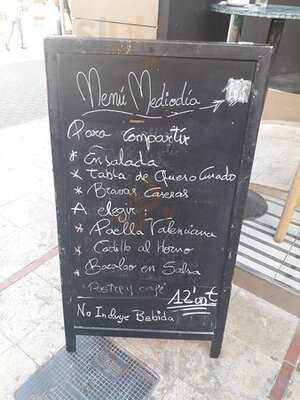 Menú Mediodía
Para compartir
* Ensalada
* Tabla de Queso Curado
* Bravas Caseras
A elegir:
* Paella Valenciana
* Codillo al Horno
* Bacalao en Salsa
Postre y café
12'00€
No Incluye Bebida